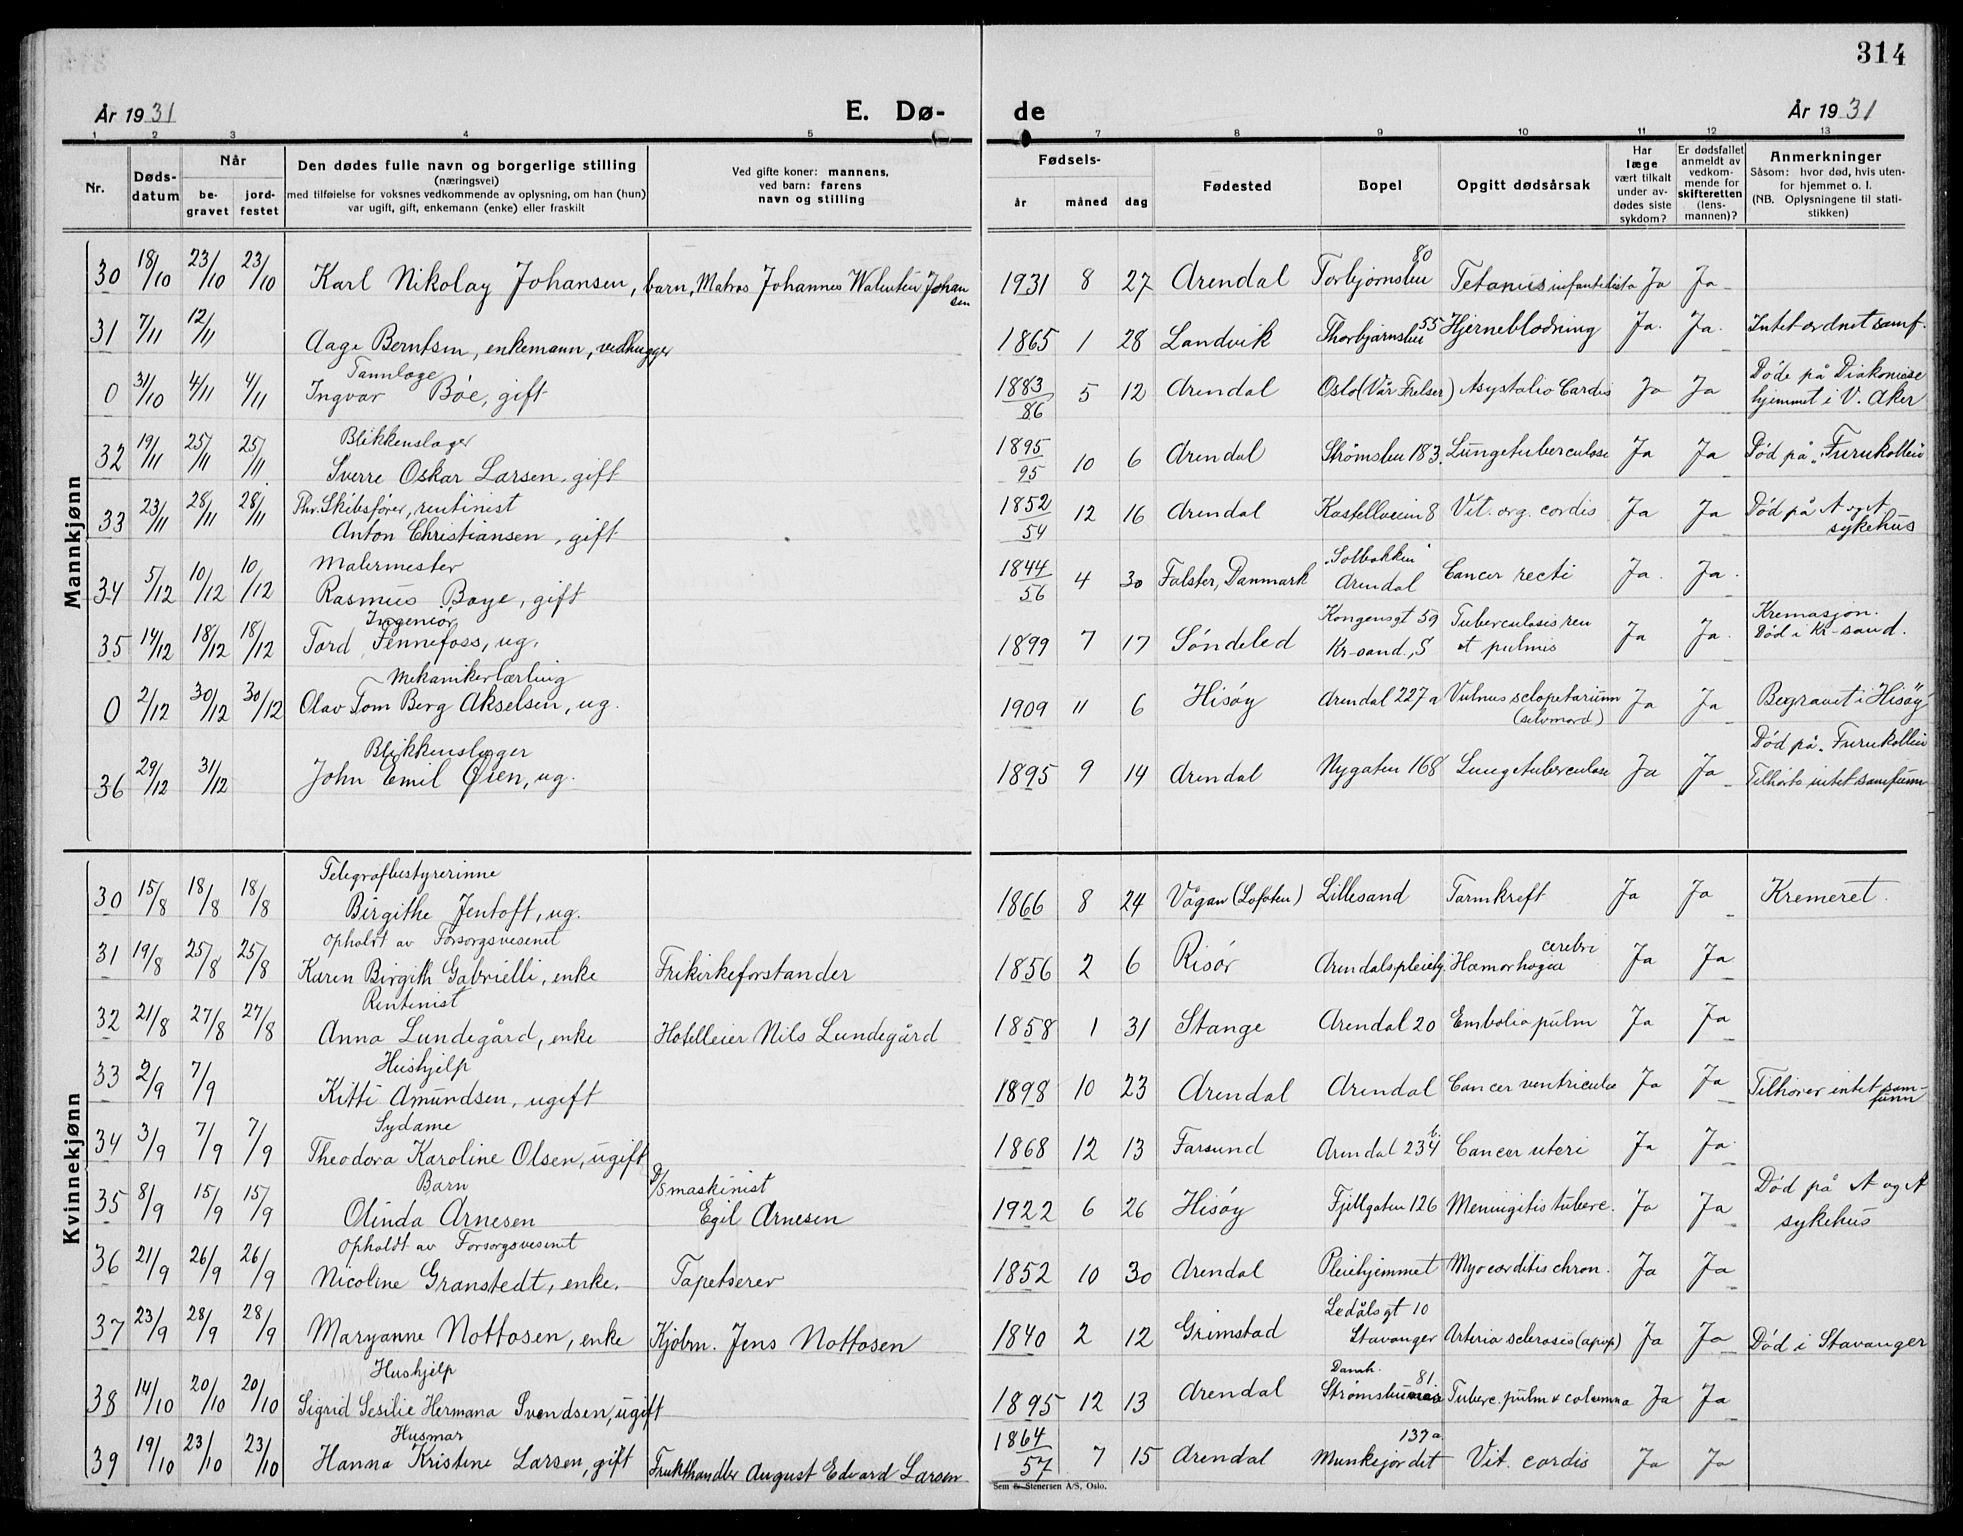 314
År 1931 E. Dø- de År 1931
1 2 3 4 5 7 8 9 10 11 12 13
Nr. Dødsdatum Når begravet jordfestet Den dødes fulle navn og borgerlige stilling (næringsvei) med tilføielse for voksnes vedkommende av oplysning, om han (hun) var ugift, gift, enkemann (enke) eller fraskilt Ved gifte koner: mannens, ved barn: farens navn og stilling Fødsels- år måned dag Fødested Bopel Opgitt dødsårsak Har læge vært tilkalt under avdødes siste sykdom? Er dødsfallet anmeldt av vedkommende for skifteretten (lensmannen)? Anmerkninger Såsom: hvor død, hvis utenfor hjemmet o. l. (NB. Oplysningene til statistikken)
Mannkjønn
30 18/10 23/10 23/10 Karl Nikolay Johansen, barn, Matros Johannes Walentin Johansen 1931 8 27 Arendal Torbjørnsbu 80 Tetanus Ja Ja
31 7/11 12/11 Aage Berntsen, enkemann, vedhugger 1865 1 28 Landvik Thorbjørnsbu 55 Hjerneblødning Ja Ja Intet ordnet samf.
Tannlæge
0 31/10 4/11 4/11 Ingvar Bøe, gift 1883/86 5 12 Arendal Oslo (Vår Frelser) Asystolio Cordis Ja Ja Døde på Diakonissehjemmet i V. Aker
Blikkenslager
32 19/11 25/11 25/11 Sverre Oskar Larsen, gift 1895/95 10 6 Arendal Strømsbu 183. Lungetuberculose Ja Ja Død på "Furukollen
Fhv. Skibsfører, rentinist
33 23/11 28/11 28/11 Anton Christiansen, gift 1852/54 12 16 Arendal Kastellveien 8 Vit. org. cordis Ja Ja Død på A og A sykehus
Malermester
34 5/12 10/12 10/12 Rasmus Boye, gift 1844/56 4 30 Falster, Danmark "Solbakken" Arendal Cancer recti Ja Ja
Ingeniør
35 14/12 18/12 18/12 Tord Fennefoss, ug. 1899 7 17 Søndeled Kongensgt 59 Kr-sand., S Tuberculosis ren et pulmis Ja Ja Kremasjon. Død i Kr-sand.
Mekanikerlærling
0 2/12 30/12 30/12 Olav Tom Berg Akselsen, ug. 1909 11 6 Hisøy Arendal 227a Vulnus sclopetarium (selvmord) Ja Ja Begravet i Hisøy
Blikkenslager
36 29/12 31/12 John Emil Øien, ug. 1895 9 14 Arendal Nygaten 168 Lungetuberculose Ja Ja Død på "Furukollen Tilhørte intet samfunn
Kvinnekjønn
Telegrafbestyrerinne
30 15/8 18/8 18/8 Birgithe Jentoft, ug. 1866 8 24 Vågan (Lofoten) Lillesand Tarmkreft Ja Ja Kremeret.
Opholdt av Forsorgsvesenet
31 19/8 25/8 25/8 Karen Birgith Gabrielli, enke Frikirkeforstander 1856 2 6 Risør Arendalspleiehj. Hæmorhagia cerebri Ja Ja
Rentenist
32 21/8 27/8 27/8 Anna Lundegård, enke Hotelleier Nils Lundegård 1858 1 31 Stange Arendal 20 Embolia pulm Ja Ja
Hushjelp
33 2/9 7/9 Kitti Amundsen, ugift 1898 10 23 Arendal Arendal Cancer ventriculi Ja Ja Tilhører intet samfunn
Sydame
34 3/9 7/9 7/9 Theodora Karoline Olsen, ugift 1868 12 13 Farsund Arendal 234 b. Cancer uteri Ja Ja
Barn
35 8/9 15/9 15/9 Olinda Arnesen D/S maskinist Egil Arnesen 1922 6 26 Hisøy Fjellgaten 126 Meningitis tuberc. Ja Ja Død på A og A sykehus
Opholdt av Forsorgsvesenet
36 21/9 26/9 26/9 Nicoline Granstedt, enke. Tapetserer 1852 10 30 Arendal Pleiehjemmet Myocarditis chron. Ja Ja
37 23/9 28/9 28/9 Maryanne Nottosen, enke Kjøbm. Jens Nottosen 1840 2 12 Grimstad Ledålsgt 10 Stavanger Arteria sclerosis (apop) Ja Ja Død i Stavanger
Hushjelp
38 14/10 20/10 20/10 Sigrid Sesilie Hermana Svendsen, ugift 1895 12 13 Arendal Strømsbu 81 Tuberc. pulm & columna Ja Ja
Husmor
39 19/10 23/10 23/10 Hanna Kristine Larsen, gift Frukthandler August Edvard Larsen 1864/57 7 15 Arendal Munkejordet 137a Vit. cordis Ja Ja
Sem & Stenersen A/S, Oslo.